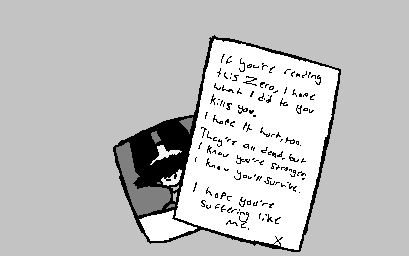 If you're reading
this Zero, I hope
what I did to you
kills you.
I hope it hurt, too.
They're all dead, but
I know you're stronger.
I know you'll survive.
I hope you're
suffering like
me.
X